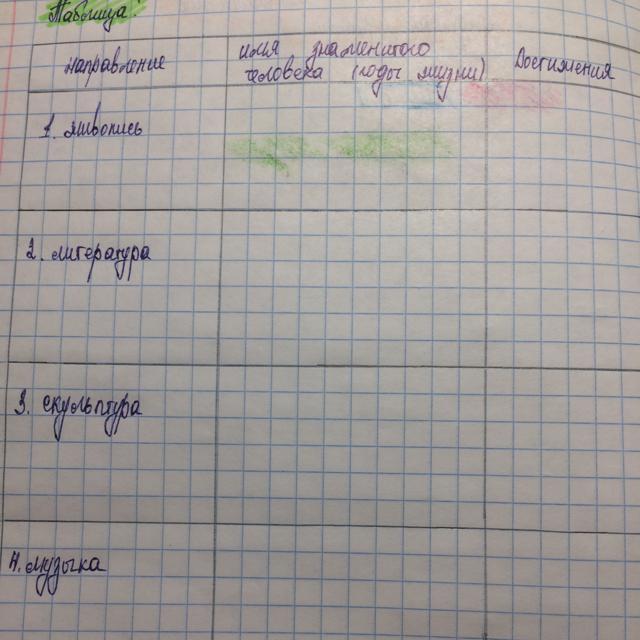 Таблица:
направление
имя знаменитого
человека (годы жизни)
Достижения
1. живопись
2. литература
3. скульптура
4. музыка